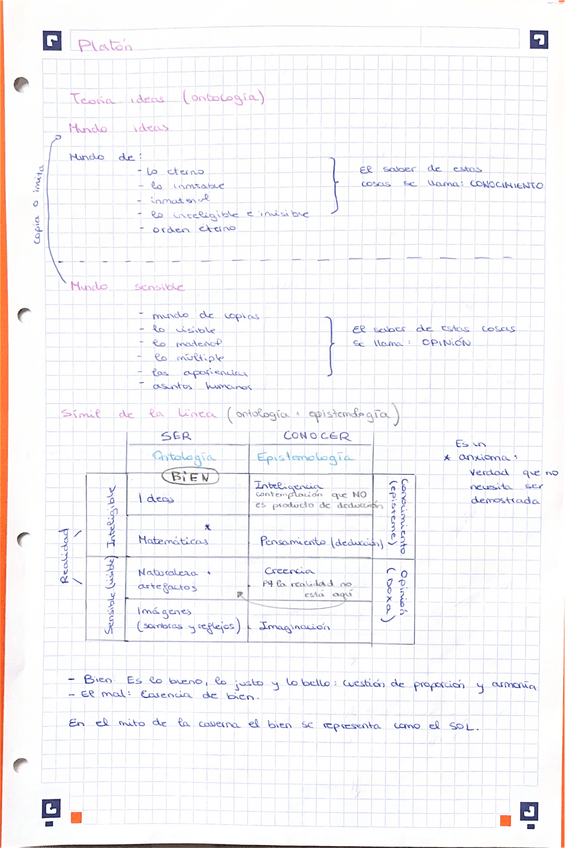 Platón
Teoría ideas (ontología)
Mundo ideas
Mundo de:
- lo eterno
- lo inmutable
- inmaterial
- lo inteligible e invisible
- orden eterno
El saber de estas
cosas se llama: CONOCIMIENTO
copia o imita
Mundo sensible
- mundo de copias
- lo visible
- lo material
- lo múltiple
- las apariencias
- asuntos humanos
El saber de estas cosas
se llama: OPINIÓN
Símil de la línea (ontología + epistemología)
SER CONOCER
Ontología Epistemología
BIEN
Ideas
Inteligencia
contemplación que NO
es producto de deducción
*
Matemáticas Pensamiento (deducción)
Naturaleza +
artefactos
Creencia
la realidad no
está aquí
Imágenes
(sombras y reflejos)
Imaginación
Realidad
Inteligible
Sensible (visible)
Conocimiento
(episteme)
Opinión
(Doxa)
Es un
* anxioma:
verdad que no
necesita ser
demostrada
- Bien: Es lo bueno, lo justo y lo bello: cuestión de proporción y armonía
- El mal: Carencia de bien.
En el mito de la caverna el bien se representa como el SOL.